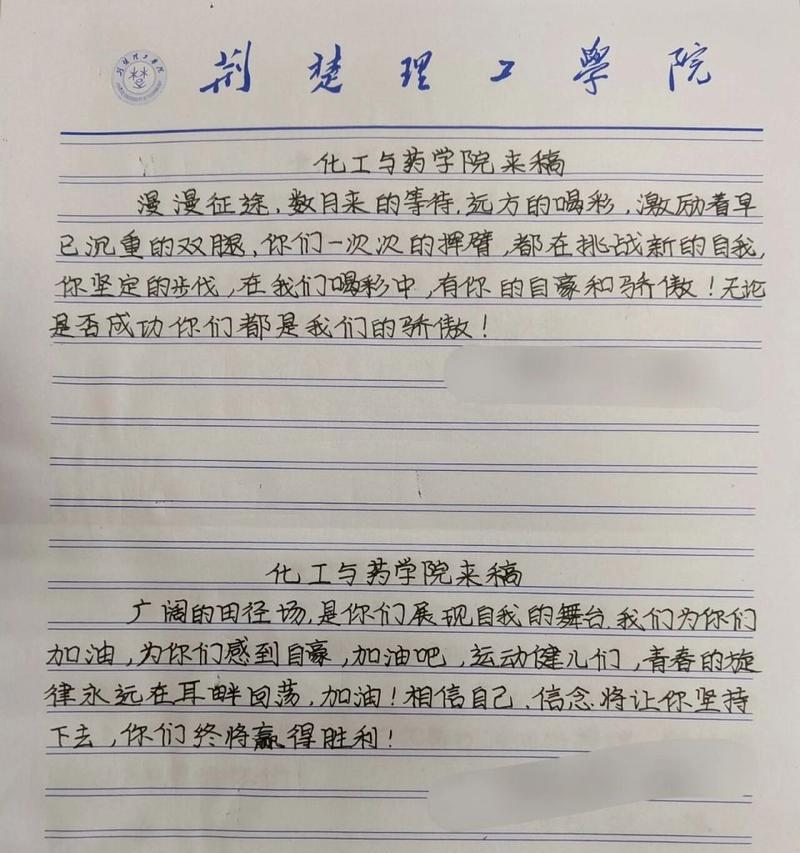 荆楚理工學院
化工与药学院来稿
漫漫征途，数月来的等待，远方的喝彩，激励着早
已沉重的双腿，你们一次次的挥臂，都在挑战新的自我，
你坚定的步伐，在我们喝彩中，有你的自豪和骄傲！无论
是否成功你们都是我们的骄傲！
化工与药学院来稿
广阔的田径场，是你们展现自我的舞台，我们为你们
加油，为你们感到自豪，加油吧，运动健儿们，青春的旋
律永远在耳畔回荡，加油！相信自己，信念将让你坚持
下去，你们终将赢得胜利！